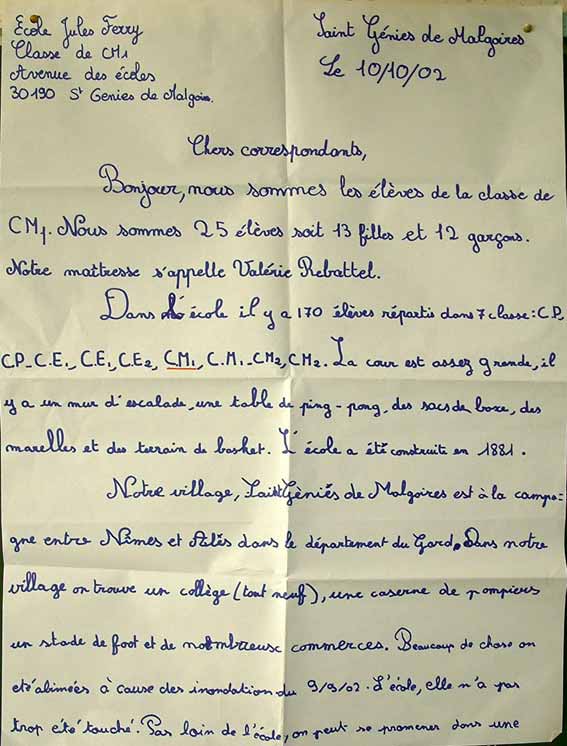 Ecole Jules Ferry
Classe de CM1
Avenue des écoles
30190 St Genies de Malgoires.
Saint Génies de Malgoires
Le 10/10/02
Chers correspondants,
Bonjour, nous sommes les élèves de la classe de
CM1. Nous sommes 25 élèves soit 13 filles et 12 garçons.
Notre maîtresse s'appelle Valérie Rebattel.
Dans l'école il y a 170 élèves répartis dans 7 classe : C.P,
CP-C.E1, C.E1, C.E2, CM1, C.M1-CM2, CM2. La cour est assez grande, il
y a un mur d'escalade, une table de ping-pong, des sacs de boxe, des
marelles et des terrain de basket. L'école a été construite en 1881.
Notre village, Saint Géniés de Malgoires est à la campa=
gne entre Nîmes et Alès dans le département du Gard. Dans notre
village on trouve un collège (tout neuf), une caserne de pompiers
un stade de foot et de nombreuse commerces. Beaucoup de chose on
été abimées à cause des inondation du 9/9/02. L'école, elle n'a pas
trop été touché. Pas loin de l'école, on peut se promener dans une